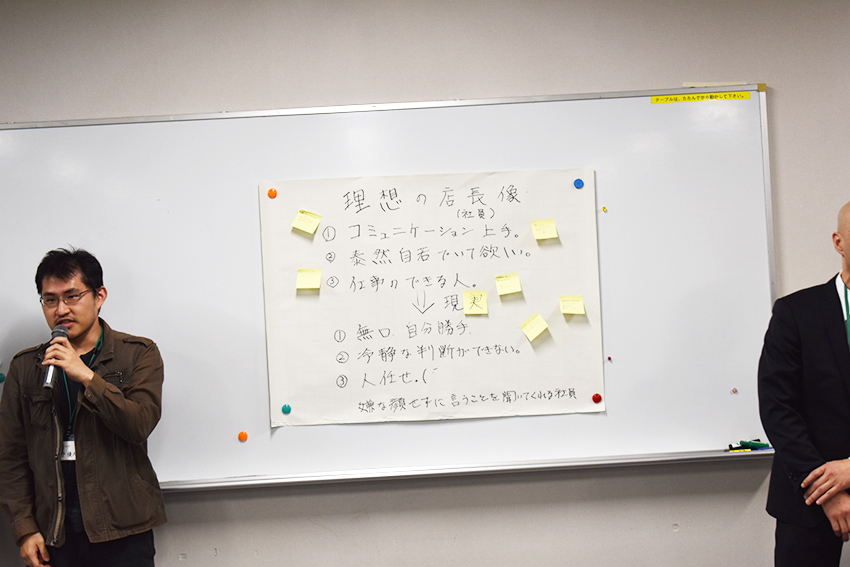 テーブルは、たたんでから動かして下さい。
理想の店長像
(社員)
① コミュニケーション上手。
② 泰然自若でいて欲しい。
③ 仕事のできる人。
⇓ 現実
① 無口 自分勝手
② 冷静な判断ができない。
③ 人任せ.
嫌な顔せずに言うことを聞いてくれる社員